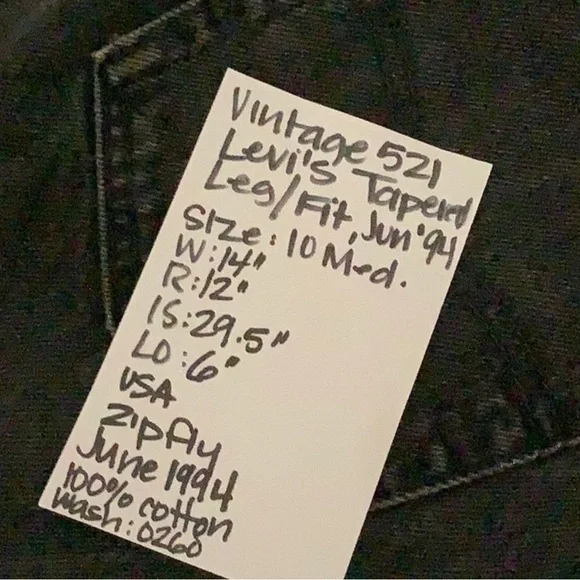 Vintage 521
Levi's Tapered
Leg/Fit, Jun '94
Size: 10 Med.
W: 14"
R: 12"
IS: 29.5"
LO: 6"
USA
Zip fly
June 1994
100% cotton
wash: 0260